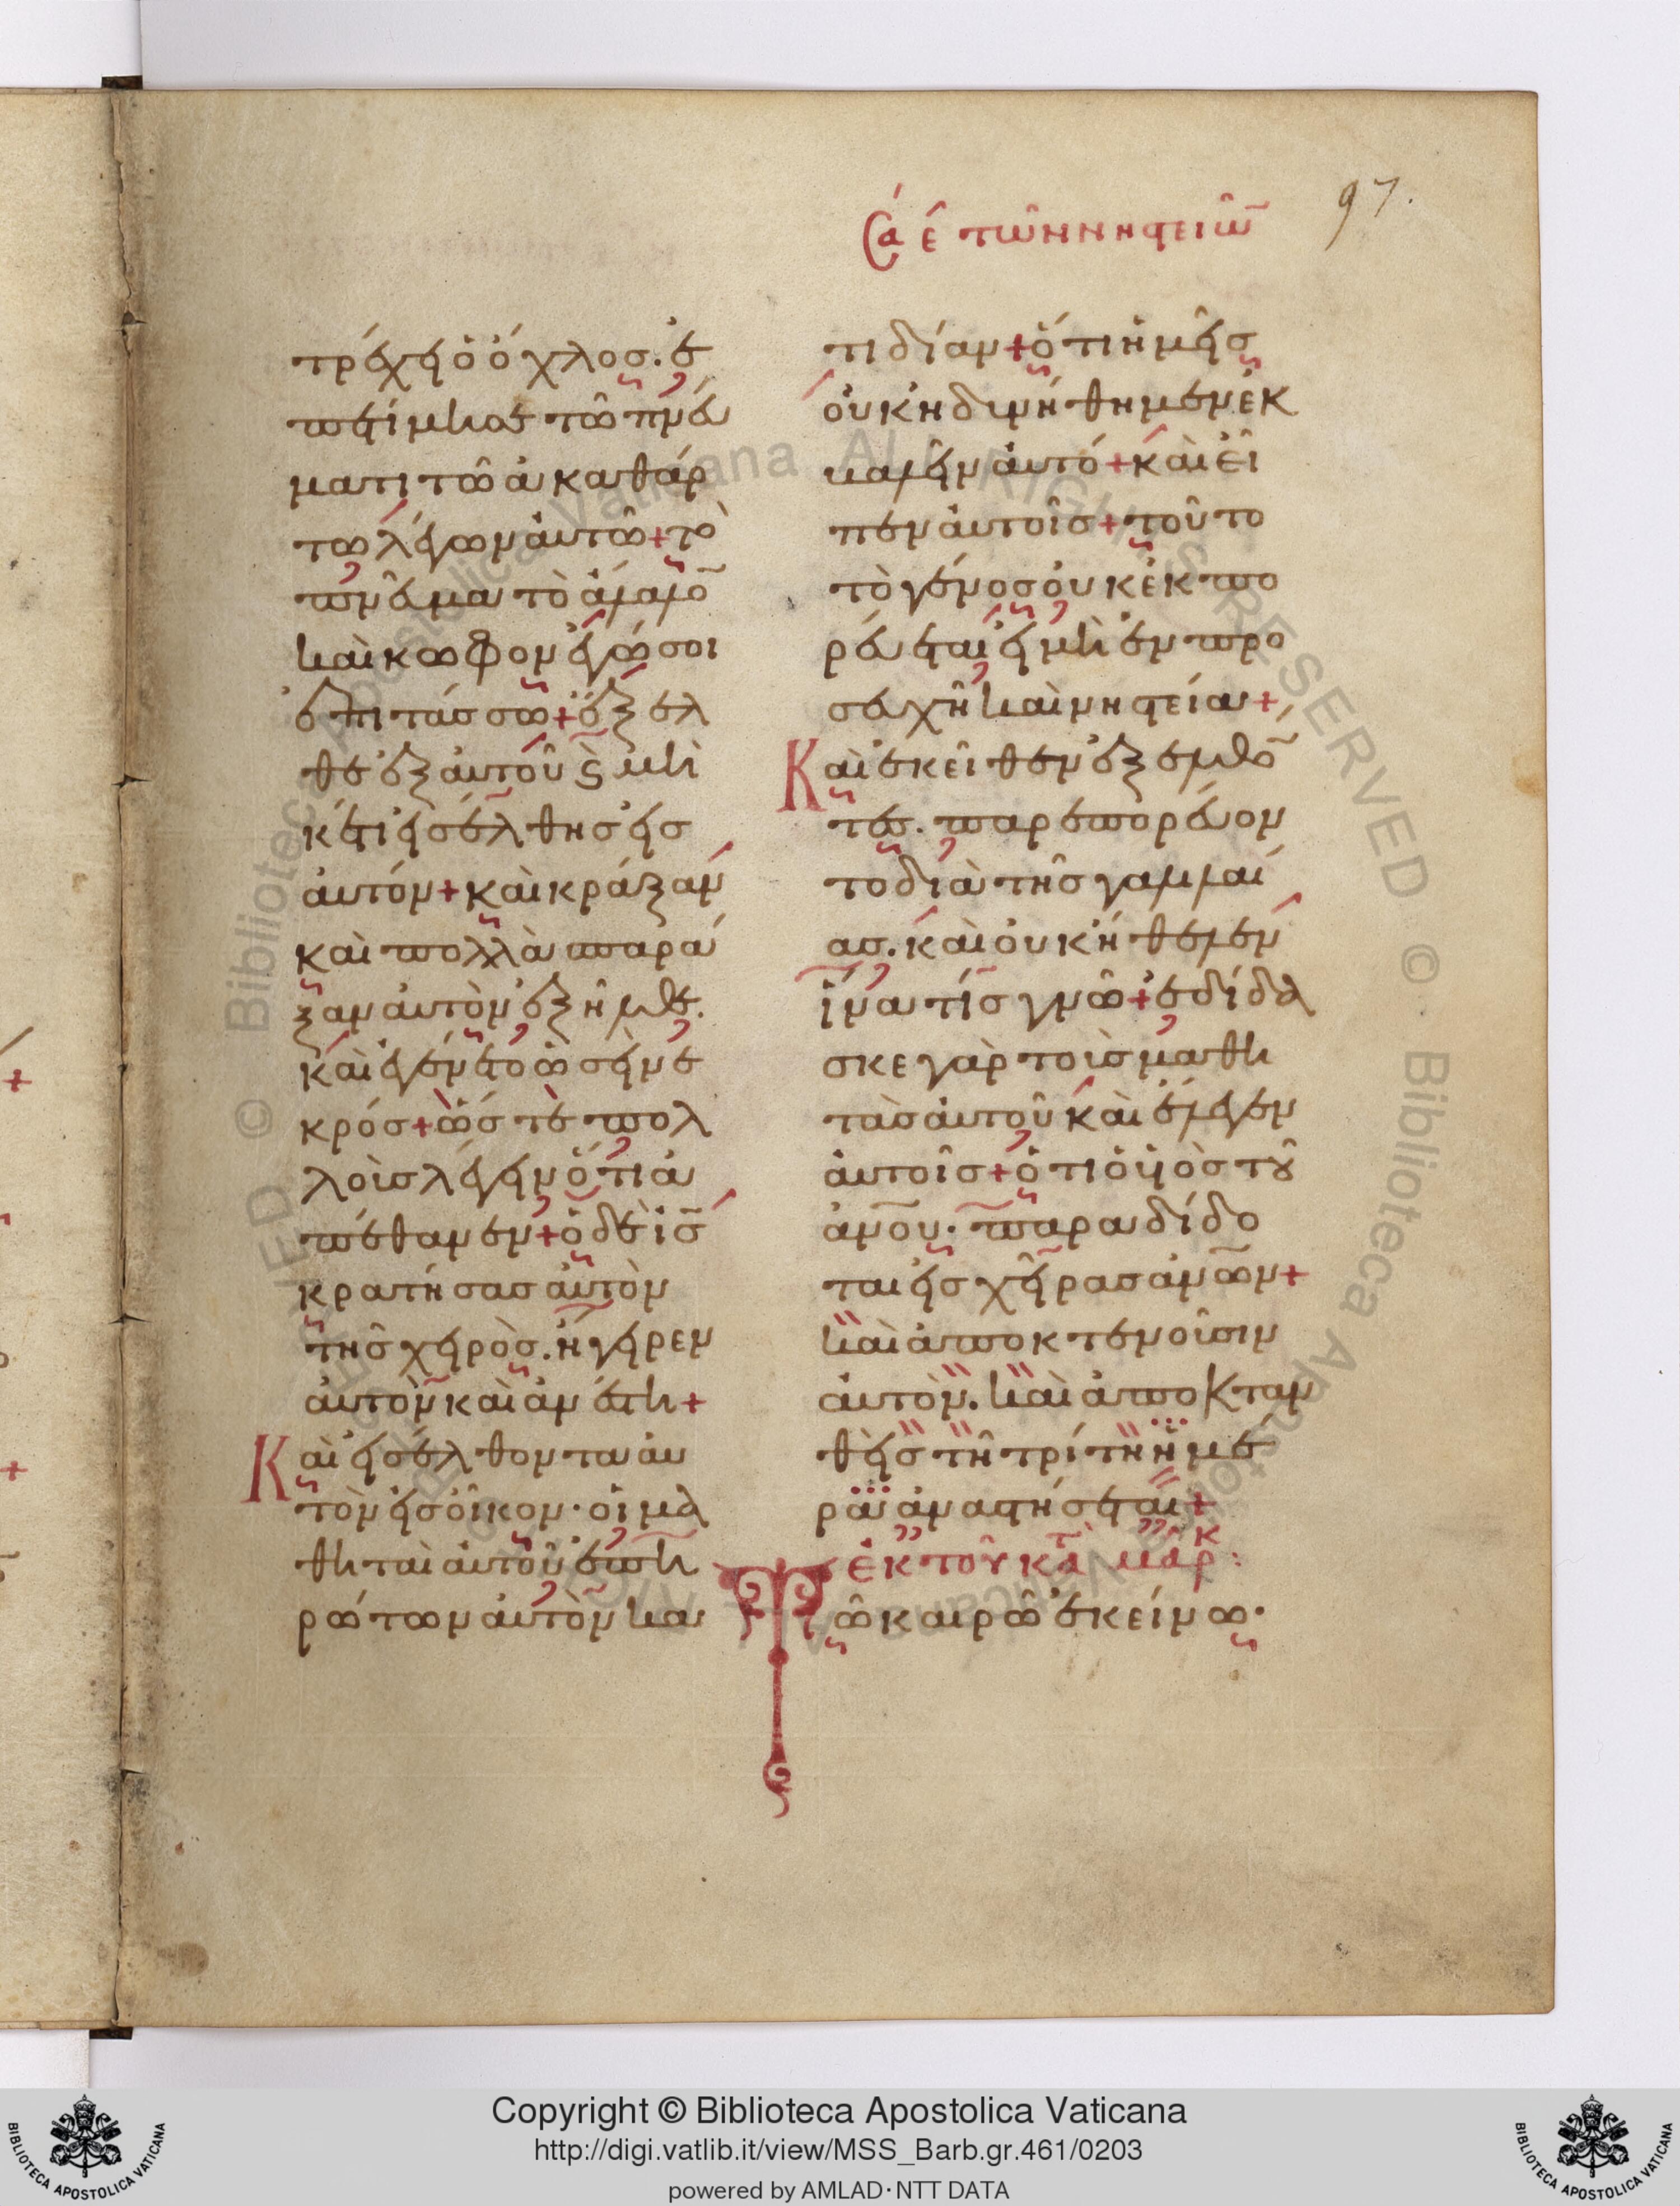 97.
Σα ε̂ τῶν νηστειῶ̅
τρέχει ὁ ὄχλος. ἐ
πετίμησε τῶ πν̅ι
ματι τῶ ἀκαθάρ
τω λέγων αὐτῶ+ τὸ
πνεῦμα τὸ ἄλαλο̅
καὶ κωφὸν ἐγώ σοι
ἐπιτάσσω+ ἔξελ
θε ἐξ αὐτοῦ ϛ μη
κέτι εἰσέλθης εἰς
αὐτόν+ καὶ κράξαν
καὶ πολλὰ σπαρά
ξαν αὐτὸν ἐξῆλθε.
καὶ ἐγένετο ὡσεὶ νε
κρός+ ὥστε πολ
λοὺς λέγειν ὅτι ἀ
πέθανεν+ ὁ δὲ ἰς̅
κρατήσας αὐτὸν
τῆς χειρὸς. ἤγειρεν
αὐτὸν καὶ ἀνέστη+
Καὶ εἰσελθόντα αὐ
τὸν εἰς οἶκον· οἱ μα
θηταὶ αὐτοῦ ἐπη
ρώτων αὐτὸν κα
τιδίαν+ ὅτι ἡμεῖς
οὐκ ἠδυνήθημεν ἐκ
βαλεῖν αὐτό+ καὶ εἶ
πεν αὐτοῖς+ τοῦτο
τὸ γένος οὐκ ἐκπο
ρεύεται εἰ μὴ ἐν προ
σευχῆ καὶ νηστεία+
Καὶ ἐκεῖθεν ἐξελθό̅
τες. παρεπορεύον
το διὰ τῆς γαλιλαί
ας. καὶ οὐκ ἤθελεν
ἵνα τίς γνῶ+ ἐδίδα
σκε γὰρ τοὺς μαθη
τὰς αὐτοῦ καὶ ἔλεγεν
αὐτοῖς+ ὅτι ὁ υἱὸς τοῦ
ἀν̅ου. παραδίδο
ται εἰς χεῖρας ἀν̅ων+
καὶ ἀποκτενοῦσιν
αὐτὸν. καὶ ἀποκταν
θεὶς τῆ τρίτη ἡμέ
ρα ἀναστήσεται+
ἐκ τοῦ κατὰ μάρκ:
Τῶ καιρῶ ἐκείνω·
Copyright © Biblioteca Apostolica Vaticana
http://digi.vatlib.it/view/MSS_Barb.gr.461/0203
powered by AMLAD·NTT DATA